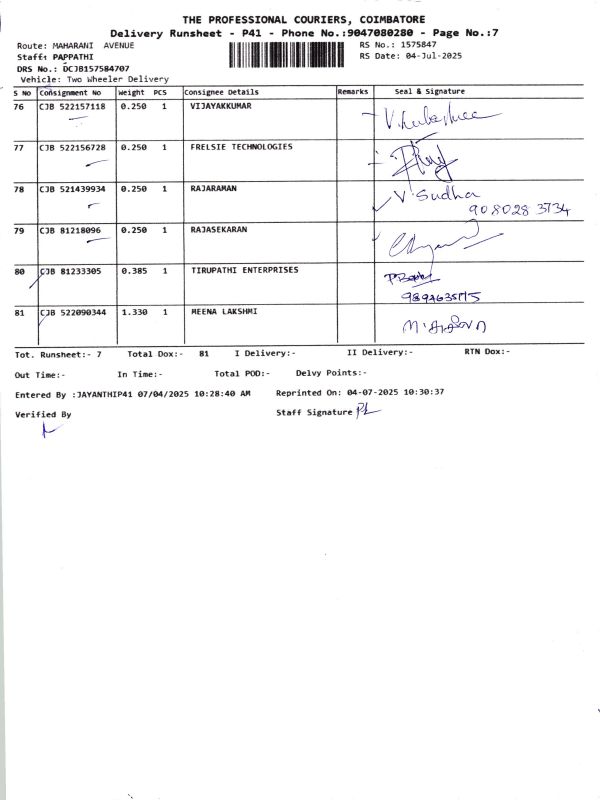 THE PROFESSIONAL COURIERS, COIMBATORE
Delivery Runsheet - P41 - Phone No.:9047080280 - Page No.:7
Route: MAHARANI AVENUE RS No.: 1575847
Staff: PAPPATHI RS Date: 04-Jul-2025
DRS No.: DCJB157584707
Vehicle: Two Wheeler Delivery
S No Consignment No Weight PCS Consignee Details Remarks Seal & Signature
76 CJB 522157118 0.250 1 VIJAYAKKUMAR
77 CJB 522156728 0.250 1 FRELSIE TECHNOLOGIES
78 CJB 521439934 0.250 1 RAJARAMAN V. Sudha
908028 3734
79 CJB 81218096 0.250 1 RAJASEKARAN
80 CJB 81233305 0.385 1 TIRUPATHI ENTERPRISES
81 CJB 522090344 1.330 1 MEENA LAKSHMI
Tot. Runsheet:- 7 Total Dox:- 81 I Delivery:- II Delivery:- RTN Dox:-
Out Time:- In Time:- Total POD:- Delvy Points:-
Entered By :JAYANTHIP41 07/04/2025 10:28:40 AM Reprinted On: 04-07-2025 10:30:37
Verified By Staff Signature